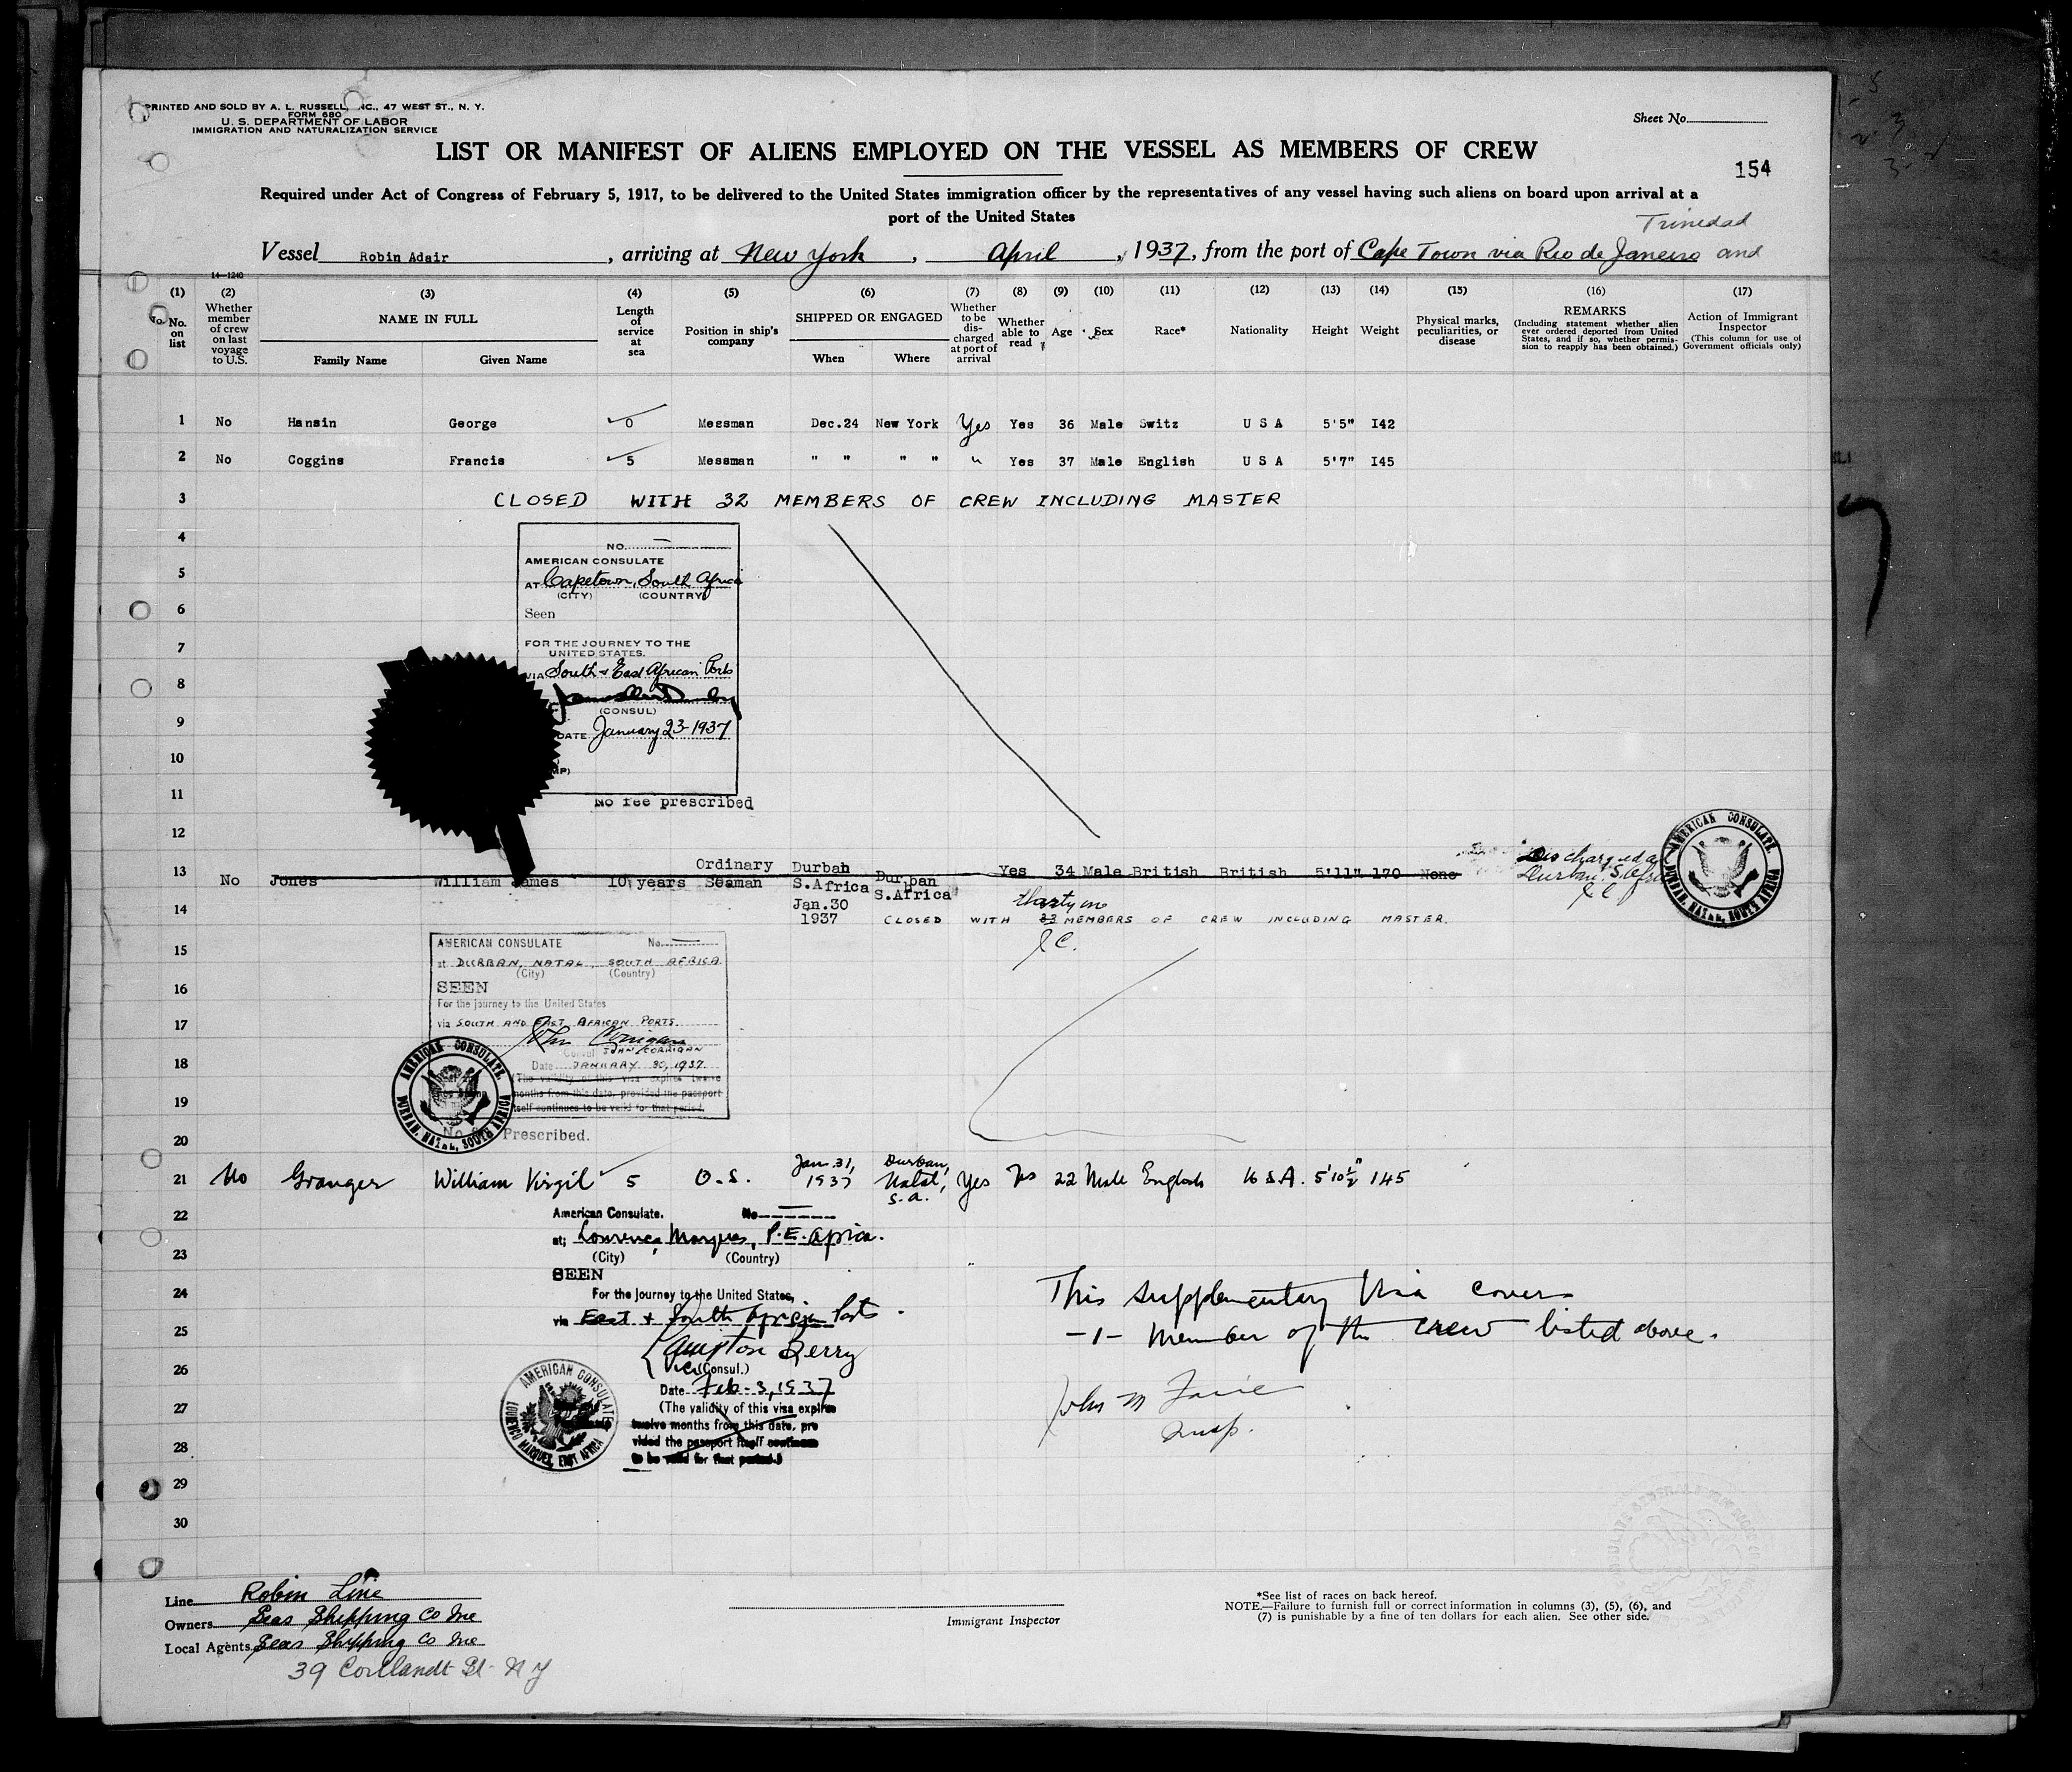 PRINTED AND SOLD BY A. L. RUSSELL, INC., 47 WEST ST., N. Y.
FORM 680
U. S. DEPARTMENT OF LABOR
IMMIGRATION AND NATURALIZATION SERVICE
Sheet No.
LIST OR MANIFEST OF ALIENS EMPLOYED ON THE VESSEL AS MEMBERS OF CREW
154
Required under Act of Congress of February 5, 1917, to be delivered to the United States immigration officer by the representatives of any vessel having such aliens on board upon arrival at a
port of the United States
Trinedad
Vessel Robin Adair, arriving at New York, April, 1937, from the port of Cape Town via Rio de Janeiro and
14-1240
(1) (2) (3) (4) (5) (6) (7) (8) (9) (10) (11) (12) (13) (14) (15) (16) (17)
No. on list
Whether member of crew on last voyage to U.S.
NAME IN FULL
Family Name Given Name
Length of service at sea
Position in ship's company
SHIPPED OR ENGAGED
When Where
Whether to be discharged at port of arrival
Whether able to read
Age
Sex
Race*
Nationality
Height
Weight
Physical marks, peculiarities, or disease
REMARKS
(Including statement whether alien ever ordered deported from United States, and if so, whether permission to reapply has been obtained.)
Action of Immigrant Inspector
(This column for use of Government officials only)
1 No Hansin George 0 Messman Dec.24 New York Yes Yes 36 Male Switz U S A 5'5" I42
2 No Coggins Francis 5 Messman " " " " " Yes 37 Male English U S A 5'7" I45
3 CLOSED WITH 32 MEMBERS OF CREW INCLUDING MASTER
4
NO.
AMERICAN CONSULATE
5
AT Capetown, South Africa
(CITY) (COUNTRY)
6
Seen
7
FOR THE JOURNEY TO THE
UNITED STATES.
VIA South & East African Ports
8
(CONSUL)
9
DATE January 23 1937
10
11
No fee prescribed
12
13 No Jones William James 10 years Ordinary Seaman Durban S.Africa Jan.30 1937 Durban S.Africa Yes 34 Male British British 5'11" 170 None
Discharged at
Durban, S. Africa
J C
AMERICAN CONSULATE, DURBAN, NATAL, SOUTH AFRICA
14 thirty one
CLOSED WITH 33 MEMBERS OF CREW INCLUDING MASTER.
J C.
15
AMERICAN CONSULATE No.
at DURBAN, NATAL, SOUTH AFRICA.
(City) (Country)
16
SEEN
For the journey to the United States
17
via SOUTH AND EAST AFRICAN PORTS.
John Corrigan
Consul JOHN CORRIGAN
18
Date JANUARY 30, 1937.
(The validity of this visa expires twelve
19
months from this date, provided the passport
itself continues to be valid for that period.
AMERICAN CONSULATE, DURBAN, NATAL, SOUTH AFRICA
20
No Prescribed.
21 No Granger William Virgil 5 O.S. Jan. 31, 1937 Durban, Natal, S.A. Yes Yes 22 Male English U.S.A. 5'10½" 145
22
American Consulate. No
at; Lourenco Marques, P.E. Africa.
23
(City) (Country)
SEEN
24
For the journey to the United States,
via East & South African Ports
25
Lampton Berry
26
Vice (Consul.)
Date Feb-3, 1937
27
(The validity of this visa expires
twelve months from this date, pro
28
vided the passport itself continues
to be valid for that period.)
AMERICAN CONSULATE LOURENCO MARQUEZ, EAST AFRICA
This supplementary visa covers
-1- member of the crew listed above.
John M
Insp.
29
30
Line Robin Line
Owners Seas Shipping Co Inc
Local Agents Seas Shipping Co Inc
39 Cortlandt St. N Y
Immigrant Inspector
*See list of races on back hereof.
NOTE.—Failure to furnish full or correct information in columns (3), (5), (6), and
(7) is punishable by a fine of ten dollars for each alien. See other side.